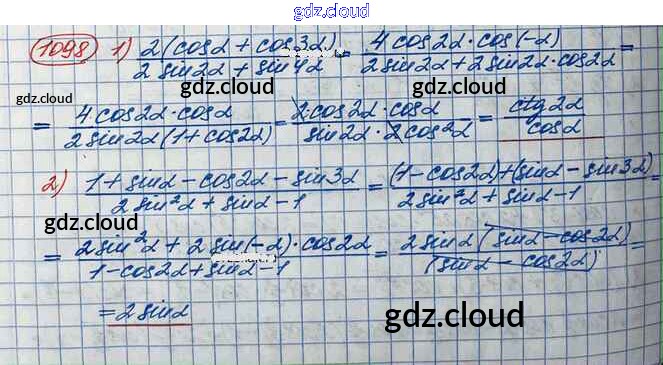 gdz.cloud
1098 1) 2(cosα + cos3α) / 2sin2α + sin4α = 4cos2α·cos(-α) / 2sin2α + 2sin2α·cos2α =
gdz.cloud
gdz.cloud
= 4cos2α·cosα / 2sin2α(1+cos2α) = 2cos2α·cosα / sin2α·2cos²α = ctg2α / cosα
2) 1+sinα-cos2α-sin3α / 2sin²α+sinα-1 = (1-cos2α)+(sinα-sin3α) / 2sin²α+sinα-1 =
gdz.cloud
= 2sin²α+2sin(-α)·cos2α / 1-cos2α+sinα-1 = 2sinα(sinα-cos2α) / (sinα-cos2α) =
= 2sinα
gdz.cloud
gdz.cloud